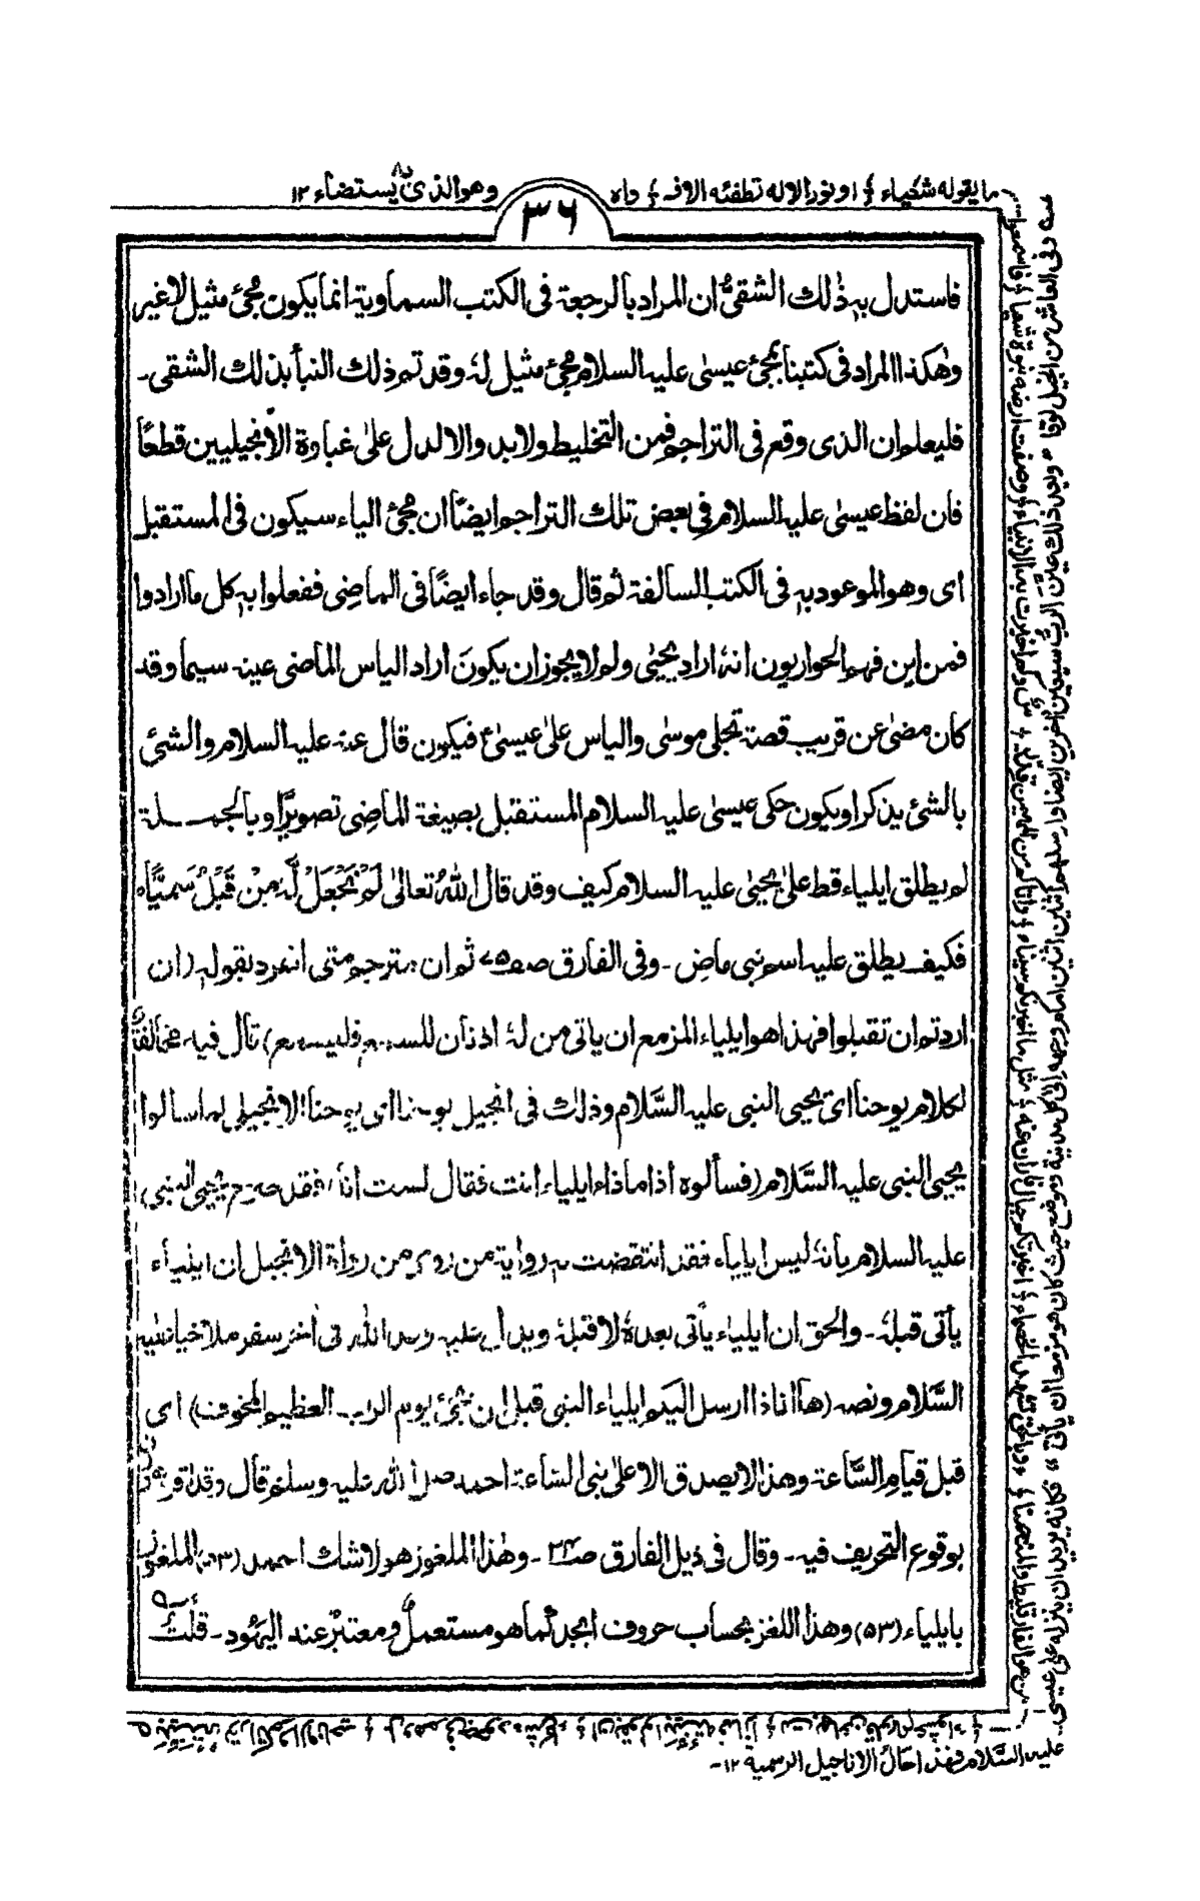 ما يقوله شعياء ؛ او نور الاله تطفئه الافـ ؛ داه وهو الذى يستضاء ١٢
٣٦
فاستدل به ذٰلك الشقىُّ ان المراد بالرجعة فى الكتب السماوية انما يكون مجئ مثيل لا غير
وهٰكذا المراد فى كتبنا بمجئ عيسىٰ عليه السلام مجئ مثيل لهٗ وقد تم ذلك النبأ بذلك الشقى۔
فليعلم ان الذى وقع فى التراجم فمن التخليط ولا بد والا لدل علىٰ غباوة الانجيليين قطعًا
فان لفظ عيسىٰ عليه السلام فى بعض تلك التراجم ايضًا ان مجئ الياء سيكون فى المستقبل
اى وهو الموعود به فى الكتب السالفة ثم قال وقد جاء ايضًا فى الماضِى ففعلوا به كل ما ارادوا
فمن اين فهم الحواريون انهٗ اراد يحيٰى ولم لا يجوز ان يكونَ اراد الياس الماضى عينه سيما وقد
كان مضىٰ عن قريب قصة تجلى موسىٰ والياس علىٰ عيسىٰ ع فيكون قال عنه عليه السلام والشئ
بالشئ يذكر او يكون حكى عيسىٰ عليه السلام المستقبل بصيغة الماضِى تصويرًا وبالجمـــلة
لم يطلق ايلياء قط علىٰ يحيىٰ عليه السلام كيف وقد قال اللهُ تعالىٰ لَمْ نَجْعَلْ لَّهٗ مِنْ قَبْلُ سَمِيًّا ٥
فكيف يطلق عليه اسم نبى ماضٍ ۔ وفى الفارق صـ٧٥ ثم ان مترجم متى انفرد بقوله (ان
اردتم ان تقبلوا فهذا هو ايلياء المزمع ان ياتى من لهٗ اذنان للسمع فليسمع) قال فيه مخالفةٌ
لكلام يوحنا اى يحيى النبى عليه السَّلام وذلك فى انجيل يوحنا اى يوحنا الانجيلى لما سالوا
يحيى النبى عليه السَّلام (فسألوه اذا ماذا ايلياء انت فقال لست انا) فقد صرح يحيى النبى
عليه السلام بانهٗ ليس ايلياء فقد انتقضت به رواية من روى من رواة الانجيل ان ايلياء
يأتى قبلهٗ ۔ والحق ان ايلياء يأتى بعدهٗ لا قبلهٗ ويدل عليه وعد الله فى أخر سفر ملاخيا عليه
السَّلام ونصه (هاانا ذا ارسل اليكم ايلياء النبى قبل ان يجئ يوم الرب العظيم المخوف) اى
قبل قيام السَّاعة وهذا لا يصدق الا علىٰ نبى السَّاعة احمد صلى الله عليه وسلم قال وقد اقر
بوقوع التحريف فيه ۔ وقال فى ذيل الفارق صـ ۔ وهٰذا الملغوز هو لا شك احمد (٥٣) الملغوز
بايلياء (٥٣) وهذا اللغز بحساب حروف ابجد كما هو مستعملٌ ومعتبرٌ عند اليهُود ۔ قلت
عـه وفى العاشر من انجيل لوقا " وبعد ذلك عيَّن الرب سبعين أخرين ايضا وارسلهم اثنين اثنين امام وجهه الى كل مدينة وموضع حيث كان هو مزمعا ان يأتى " فكانه يريد ان ينزله على عيسى
عليه السَّلام فهذا حال الاناجيل الرسمية ١٢۔